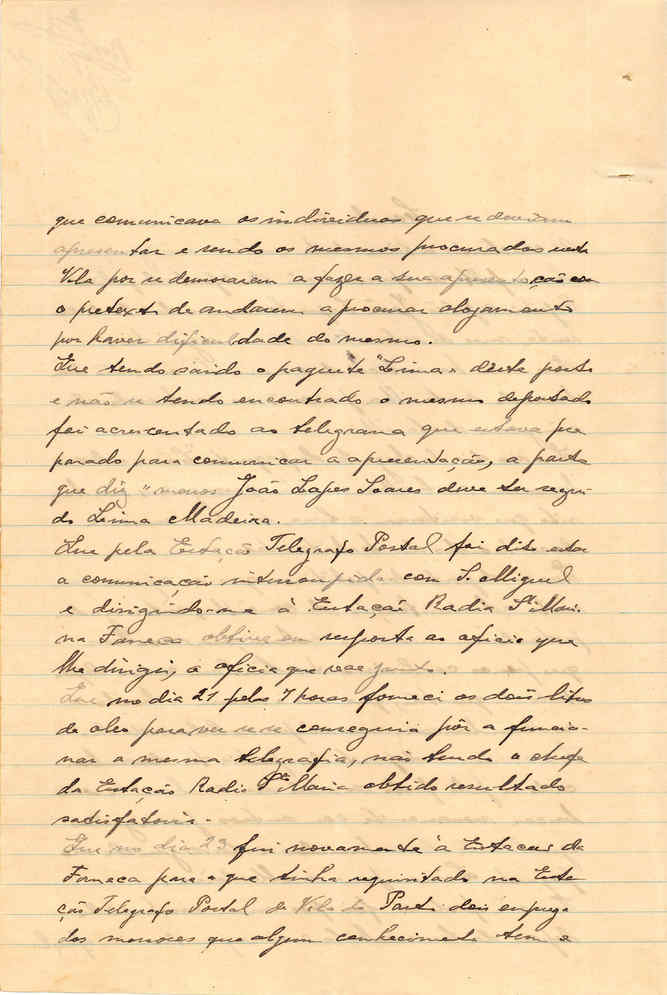 que comunicava os individuos que se deveriam
apresentar e sendo os mesmos procurados nesta
Vila por se demorarem a fazer a sua apresentação com
o pretexto de andarem a procurar alojamento
por haver dificuldade do mesmo.
Que tendo saido o paquete "Lima" deste porto
e não se tendo encontrado o mesmo deportado
foi acrescentado ao telegrama que estava pre
parado para comunicar a apresentação, a parte
que diz "menos João Lopes Soares deve ter segui
do Lima Madeira.
Que pela Estação Telegrafo Postal foi dito estar
a comunicação interrompida com S. Miguel
e dirigindo-me à Estação Radio Stª Maria
na Faneca obtive em resposta ao oficio que
lhe dirigi, o oficio que vae junto.
Que no dia 21 pelas 7 horas forneci os dois litros
de oleo para ver se se conseguia pôr a funcio-
nar a mesma telegrafia, não tendo o chefe
da Estação Radio Stª Maria obtido resultado
satisfatorio.
Que no dia 23 fui novamente à Estação da
Faneca para o que tinha requisitado na Esta
ção Telegrafo Postal da Vila do Porto dois emprega
dos menores que algum conhecimento tem e